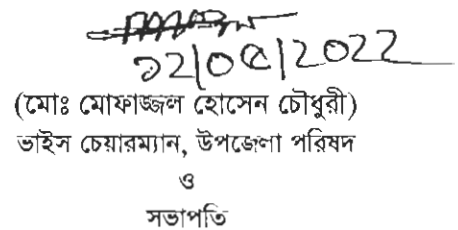 ১২/০৫/2022
(মোঃ মোফাজ্জল হোসেন চৌধুরী)
ভাইস চেয়ারম্যান, উপজেলা পরিষদ
ও
সভাপতি